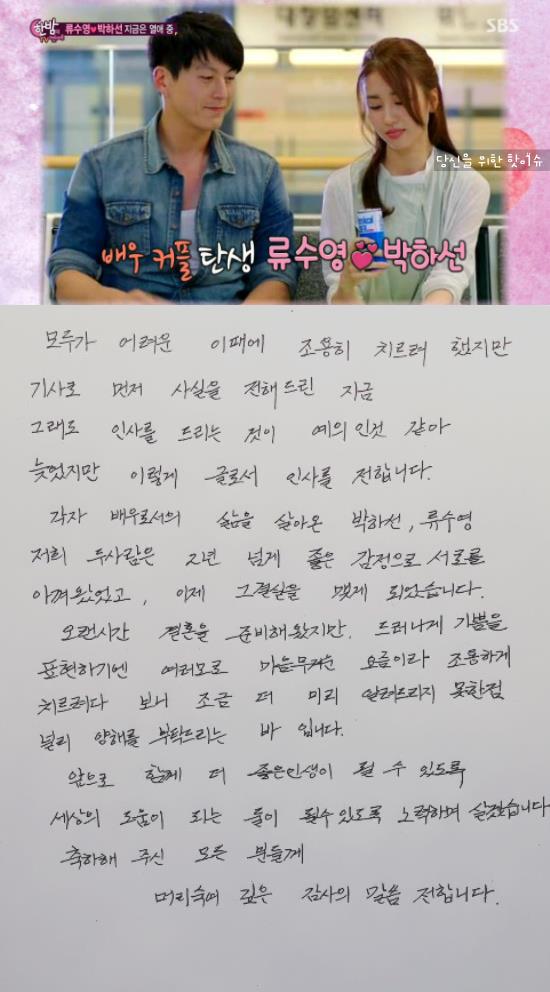 한밤의 TV연예
류수영♥박하선 지금은 열애 중,
SBS
당신을 위한 핫이슈
배우 커플 탄생 류수영♥박하선
모두가 어려운 이때에 조용히 치르려 했지만
기사로 먼저 사실을 전해드린 지금
그래도 인사를 드리는 것이 예의 인것 같아
늦었지만 이렇게 글로서 인사를 전합니다.
각자 배우로서의 삶을 살아온 박하선, 류수영
저희 두사람은 2년 넘게 좋은 감정으로 서로를
아껴왔었고, 이제 그결실을 맺게 되었습니다.
오랜시간 결혼을 준비해왔지만, 드러나게 기쁨을
표현하기엔 여러모로 마음무거운 요즘이라 조용하게
치르려다 보니 조금 더 미리 알려드리지 못한점
널리 양해를 부탁드리는 바 입니다.
앞으로 함께 더 좋은인생이 될 수 있도록
세상의 도움이 되는 둘이 될수 있도록 노력하며 살겠습니다
축하해 주신 모든 분들께
머리숙여 깊은 감사의 말씀 전합니다.